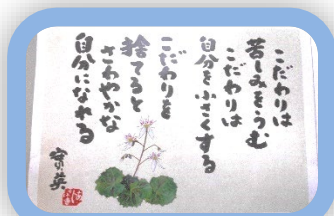 こだわりは
苦しみをうむ
こだわりは
自分を小さくする
こだわりを
捨てると
さわやかな
自分になれる